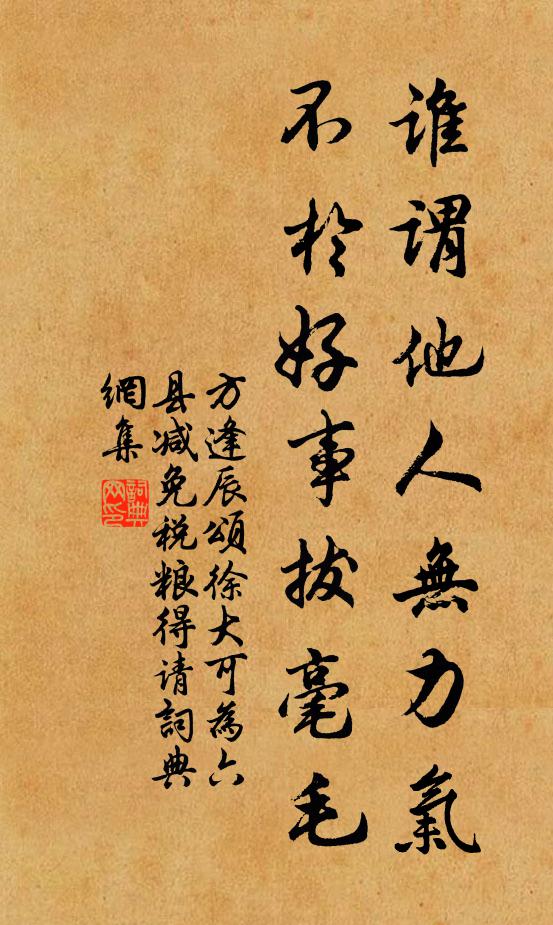 誰謂他人無力氣
不於好事拔毫毛
方逢辰頌徐大可為六
县减免税粮得请詞典
網集
詞典
网印